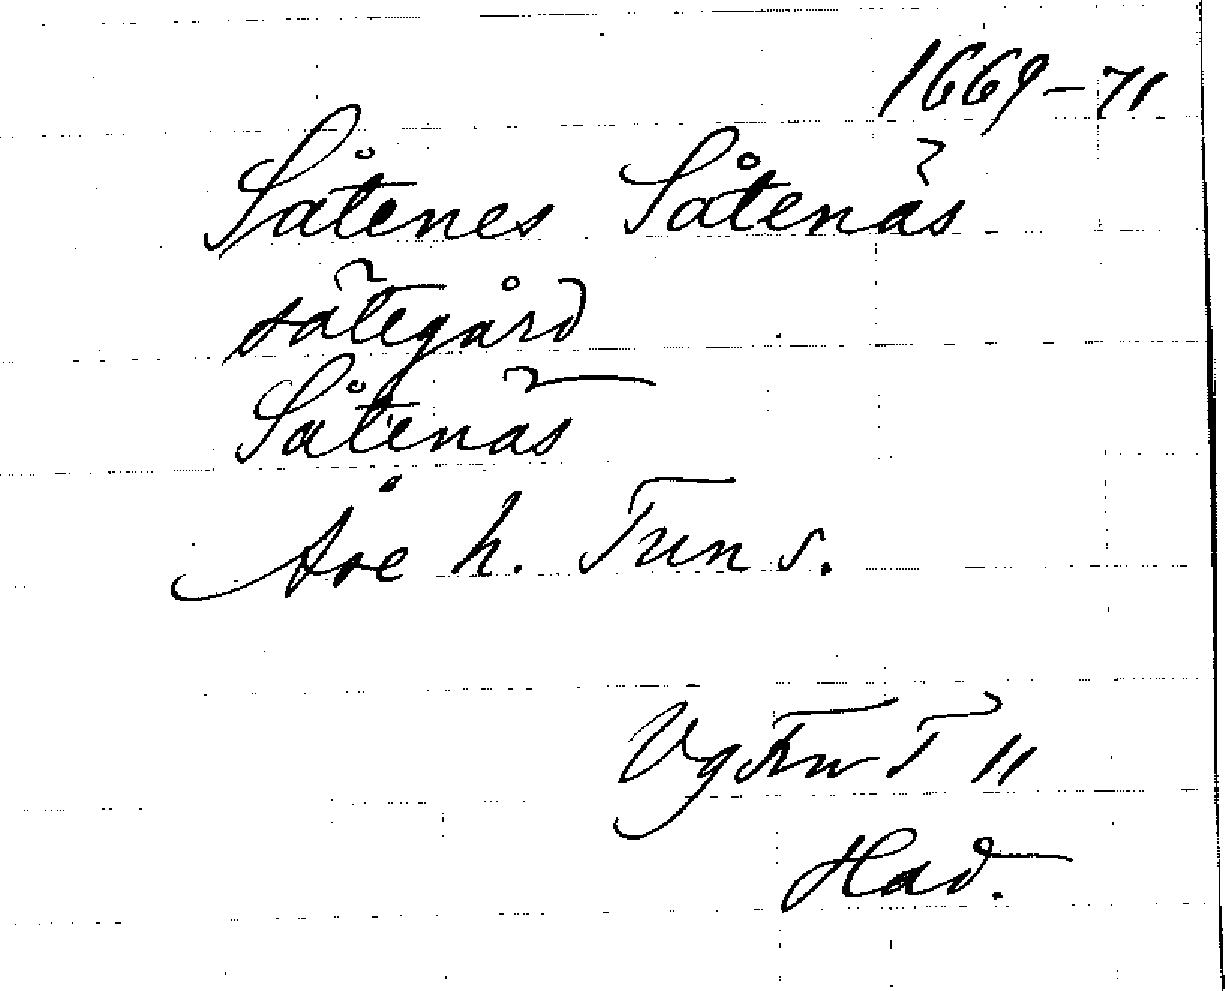 1669-71
Såtenes Såtenäs
sätegård
Såtenäs
Åse h. Tun s.
Vg T 11
Had.